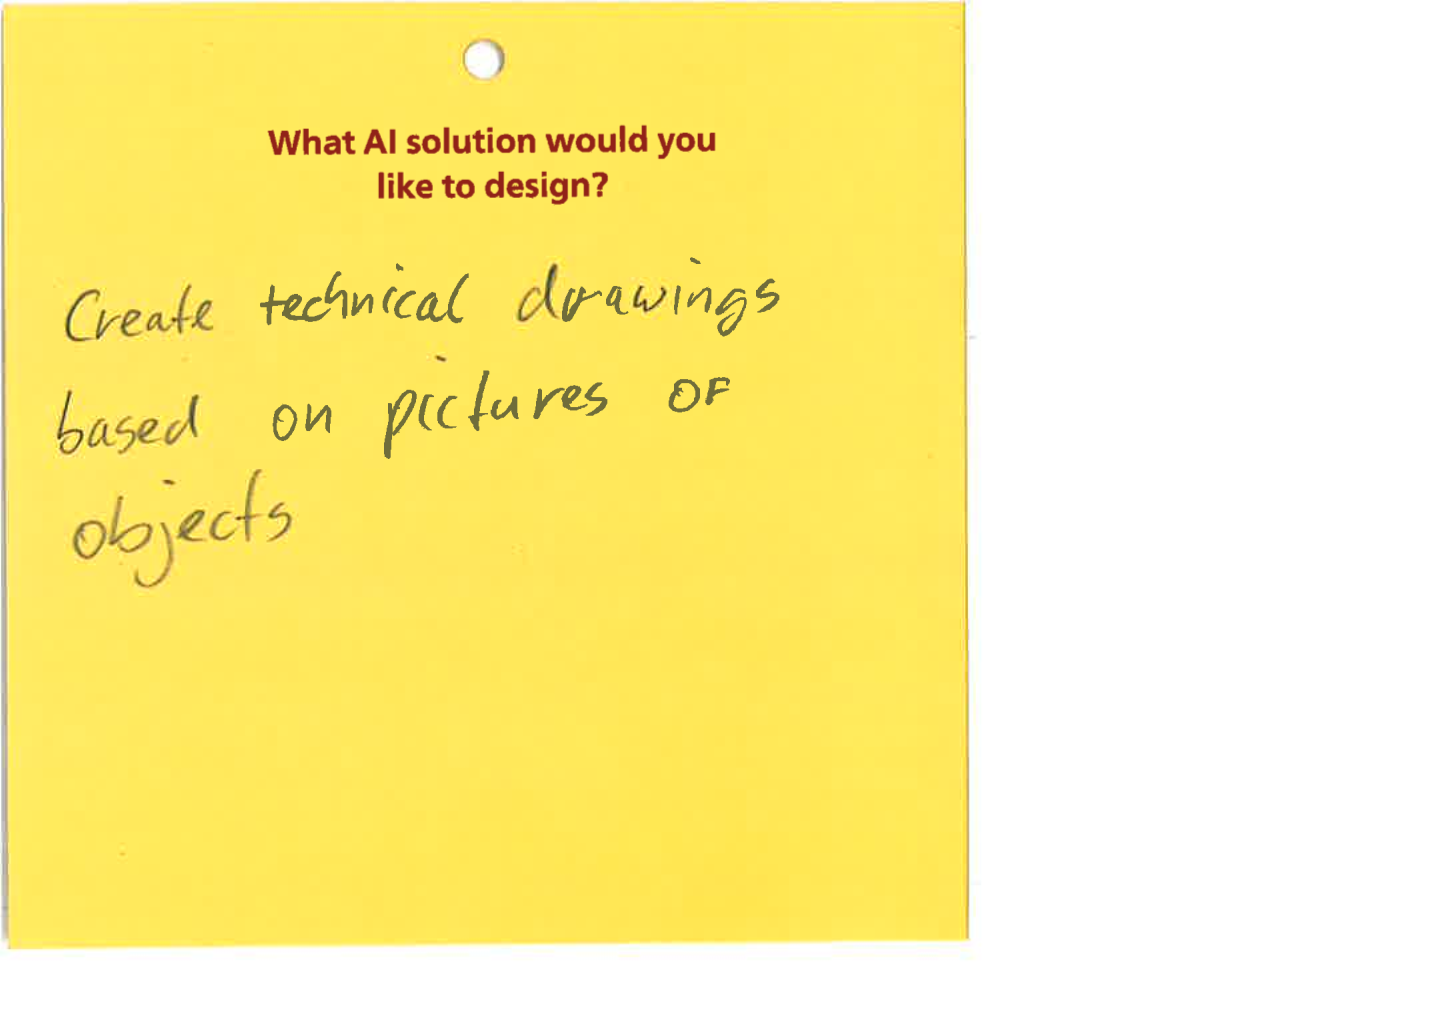 What AI solution would you
like to design?
Create technical drawings
based on pictures of
objects